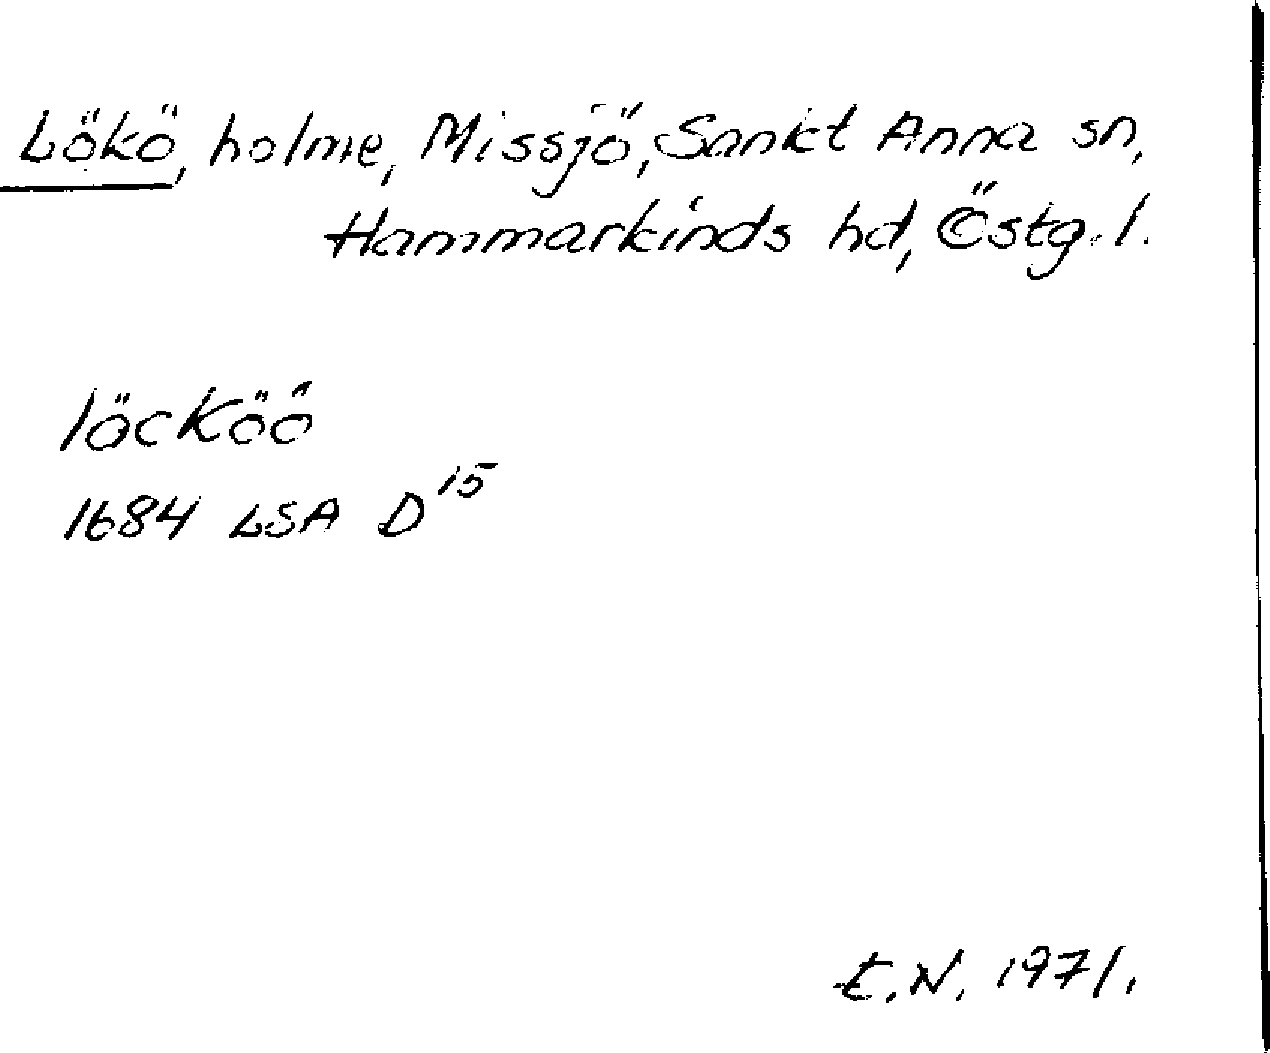 Lökö, holme, Missjö, Sankt Anna sn,
Hammarkinds hd, Östg. l.
löcköö
1684 LSA D15
E.N. 1971.